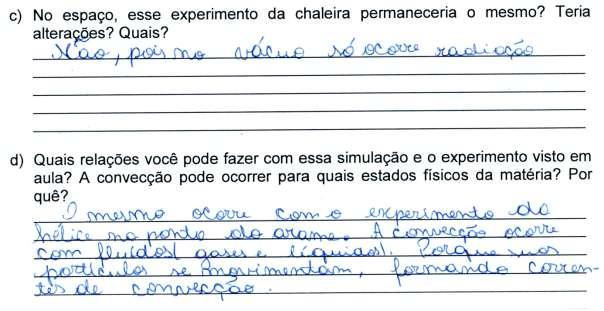 c) No espaço, esse experimento da chaleira permaneceria o mesmo? Teria
alterações? Quais?
Não, pois no vácuo só ocorre radiação
d) Quais relações você pode fazer com essa simulação e o experimento visto em
aula? A convecção pode ocorrer para quais estados físicos da matéria? Por
quê?
O mesmo ocorre com o experimento da
hélice na ponta do arame. A convecção ocorre
com fluídos( gases e líquidos). Porque suas
partículas se movimentam, formando corren-
tes de convecção.